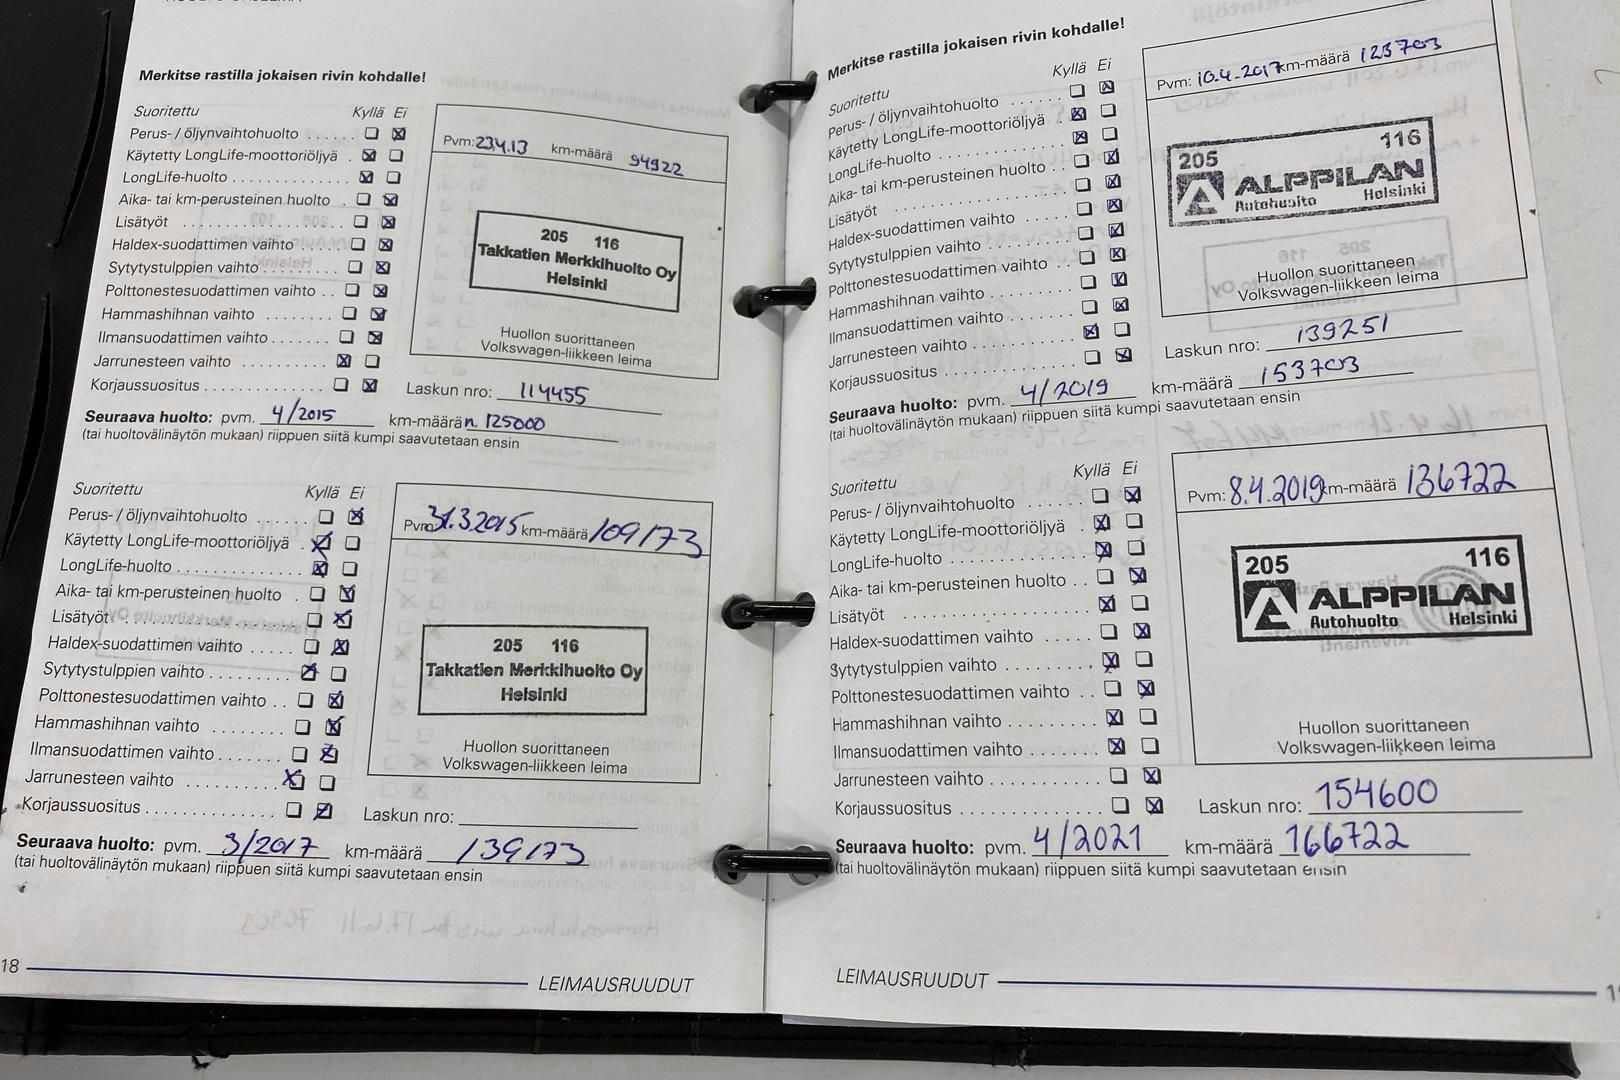 Merkitse rastilla jokaisen rivin kohdalle!
Suoritettu Kyllä Ei
Perus- / öljynvaihtohuolto
Käytetty LongLife-moottoriöljyä
LongLife-huolto
Aika- tai km-perusteinen huolto
Lisätyöt
Haldex-suodattimen vaihto
Sytytystulppien vaihto
Polttonestesuodattimen vaihto
Hammashihnan vaihto
Ilmansuodattimen vaihto
Jarrunesteen vaihto
Korjaussuositus
Pvm: 23.4.13 km-määrä 94922
205 116
Takkatien Merkkihuolto Oy
Helsinki
Huollon suorittaneen
Volkswagen-liikkeen leima
Laskun nro: 114455
Seuraava huolto: pvm. 4/2015 km-määrä n. 125000
(tai huoltovälinäytön mukaan) riippuen siitä kumpi saavutetaan ensin
Suoritettu Kyllä Ei
Perus- / öljynvaihtohuolto
Käytetty LongLife-moottoriöljyä
LongLife-huolto
Aika- tai km-perusteinen huolto
Lisätyöt
Haldex-suodattimen vaihto
Sytytystulppien vaihto
Polttonestesuodattimen vaihto
Hammashihnan vaihto
Ilmansuodattimen vaihto
Jarrunesteen vaihto
Korjaussuositus
Pvm: 31.3.2015 km-määrä 109173
205 116
Takkatien Merkkihuolto Oy
Helsinki
Huollon suorittaneen
Volkswagen-liikkeen leima
Laskun nro:
Seuraava huolto: pvm. 3/2017 km-määrä 139173
(tai huoltovälinäytön mukaan) riippuen siitä kumpi saavutetaan ensin
18
LEIMAUSRUUDUT
Merkitse rastilla jokaisen rivin kohdalle!
Suoritettu Kyllä Ei
Perus- / öljynvaihtohuolto
Käytetty LongLife-moottoriöljyä
LongLife-huolto
Aika- tai km-perusteinen huolto
Lisätyöt
Haldex-suodattimen vaihto
Sytytystulppien vaihto
Polttonestesuodattimen vaihto
Hammashihnan vaihto
Ilmansuodattimen vaihto
Jarrunesteen vaihto
Korjaussuositus
Pvm: 10.4.2017 km-määrä 123703
205 116
ALPPILAN
Autohuolto Helsinki
Huollon suorittaneen
Volkswagen-liikkeen leima
Laskun nro: 139251
Seuraava huolto: pvm. 4/2019 km-määrä 153703
(tai huoltovälinäytön mukaan) riippuen siitä kumpi saavutetaan ensin
Suoritettu Kyllä Ei
Perus- / öljynvaihtohuolto
Käytetty LongLife-moottoriöljyä
LongLife-huolto
Aika- tai km-perusteinen huolto
Lisätyöt
Haldex-suodattimen vaihto
Sytytystulppien vaihto
Polttonestesuodattimen vaihto
Hammashihnan vaihto
Ilmansuodattimen vaihto
Jarrunesteen vaihto
Korjaussuositus
Pvm: 8.4.2019 km-määrä 136722
205 116
ALPPILAN
Autohuolto Helsinki
Huollon suorittaneen
Volkswagen-liikkeen leima
Laskun nro: 154600
Seuraava huolto: pvm. 4/2021 km-määrä 166722
(tai huoltovälinäytön mukaan) riippuen siitä kumpi saavutetaan ensin
LEIMAUSRUUDUT